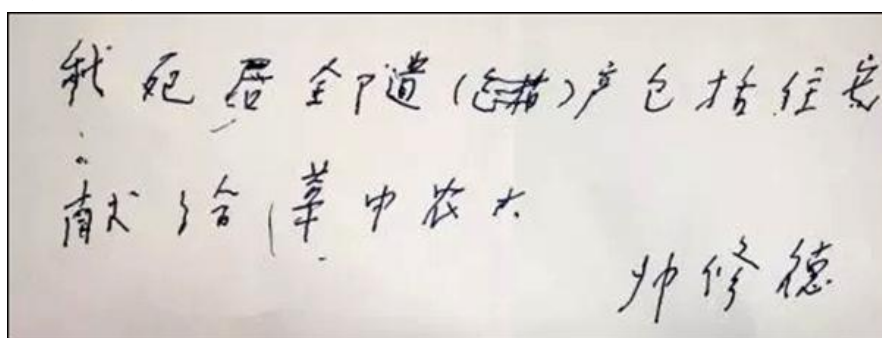 我死后全卩遗(包括)产包括住房
献给华中农大
帅修德